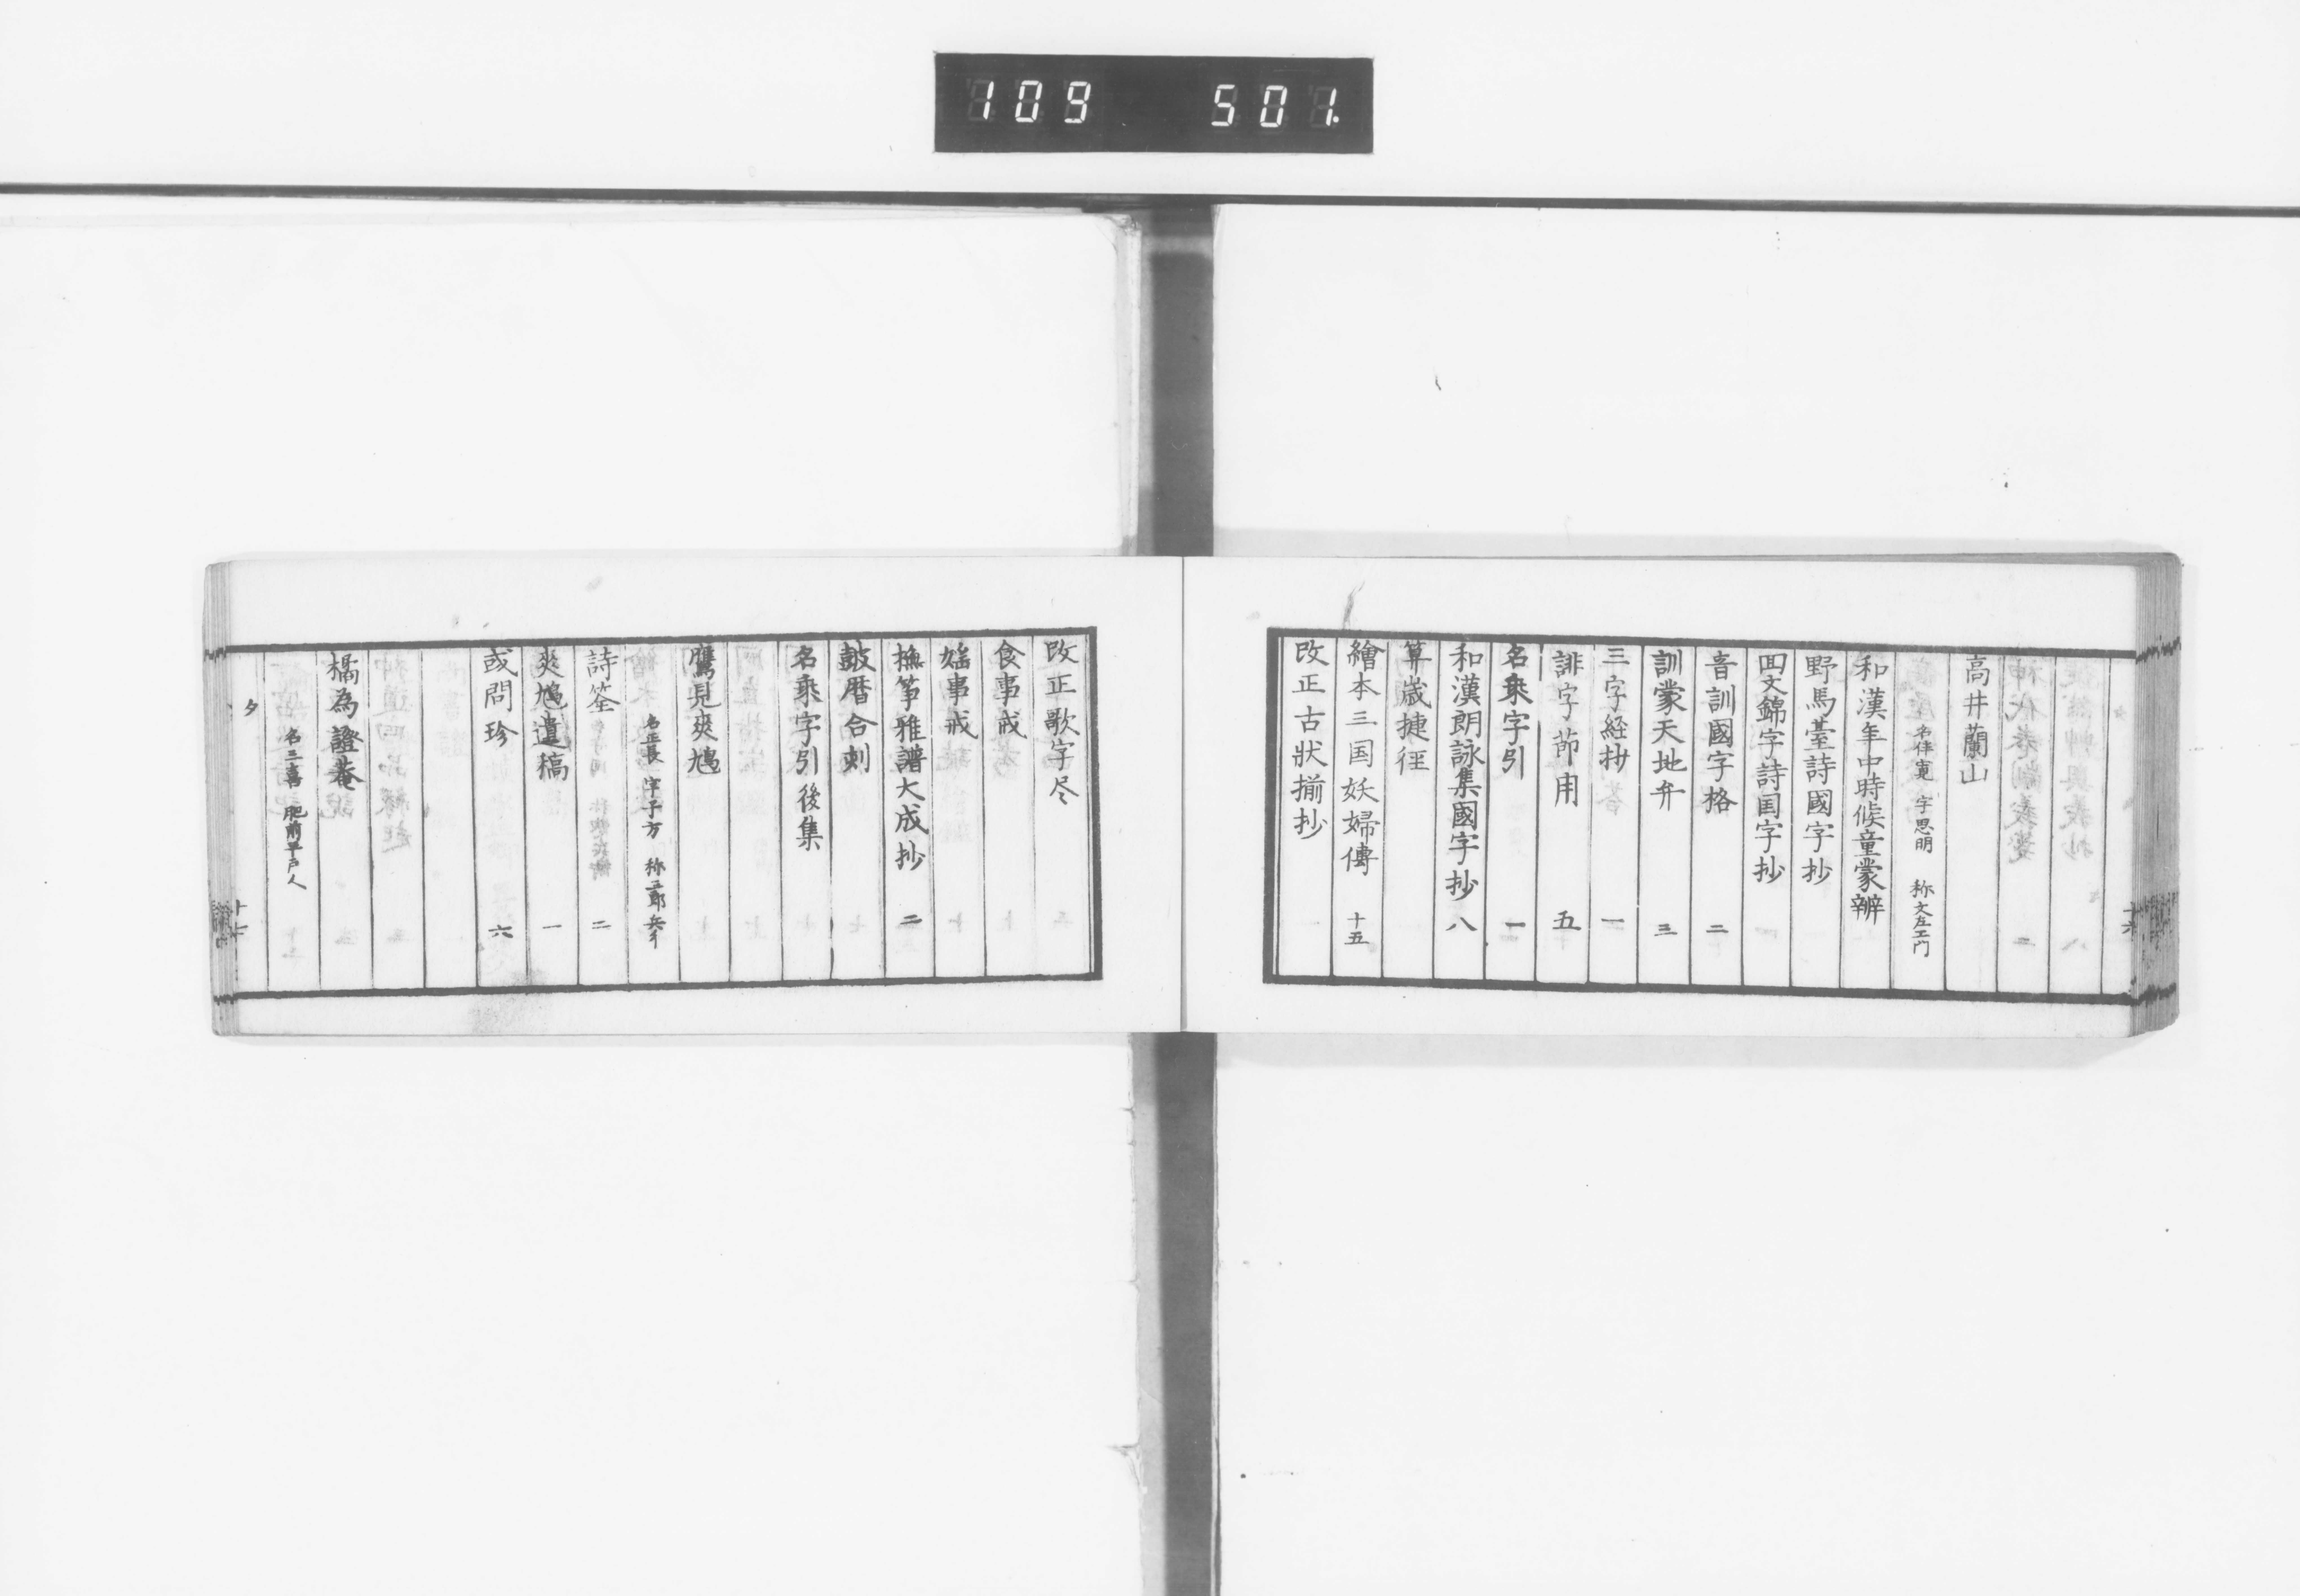 109 501.
高井蘭山
名伴寛 字思明 称文左エ門
和漢年中時候童蒙辨
野馬臺詩國字抄
回文錦字詩国字抄 一
音訓國字格 二
訓蒙天地弁 三
三字経抄 一
誹字節用 五
名乗字引 一
和漢朗詠集國字抄 八
算歳捷径
繪本三国妖婦傳 十五
改正古状揃抄
改正歌字尽
食事戒
婬事戒
撫筝雅譜大成抄 二
皷暦合刻
名乗字引後集
鷹見爽鳩
名正長 字子方 称三郎兵ヱ
詩筌 二
爽鳩遺稿 一
或問珍 六
橘為證菴
名三喜 肥前平戸人
タ
十七